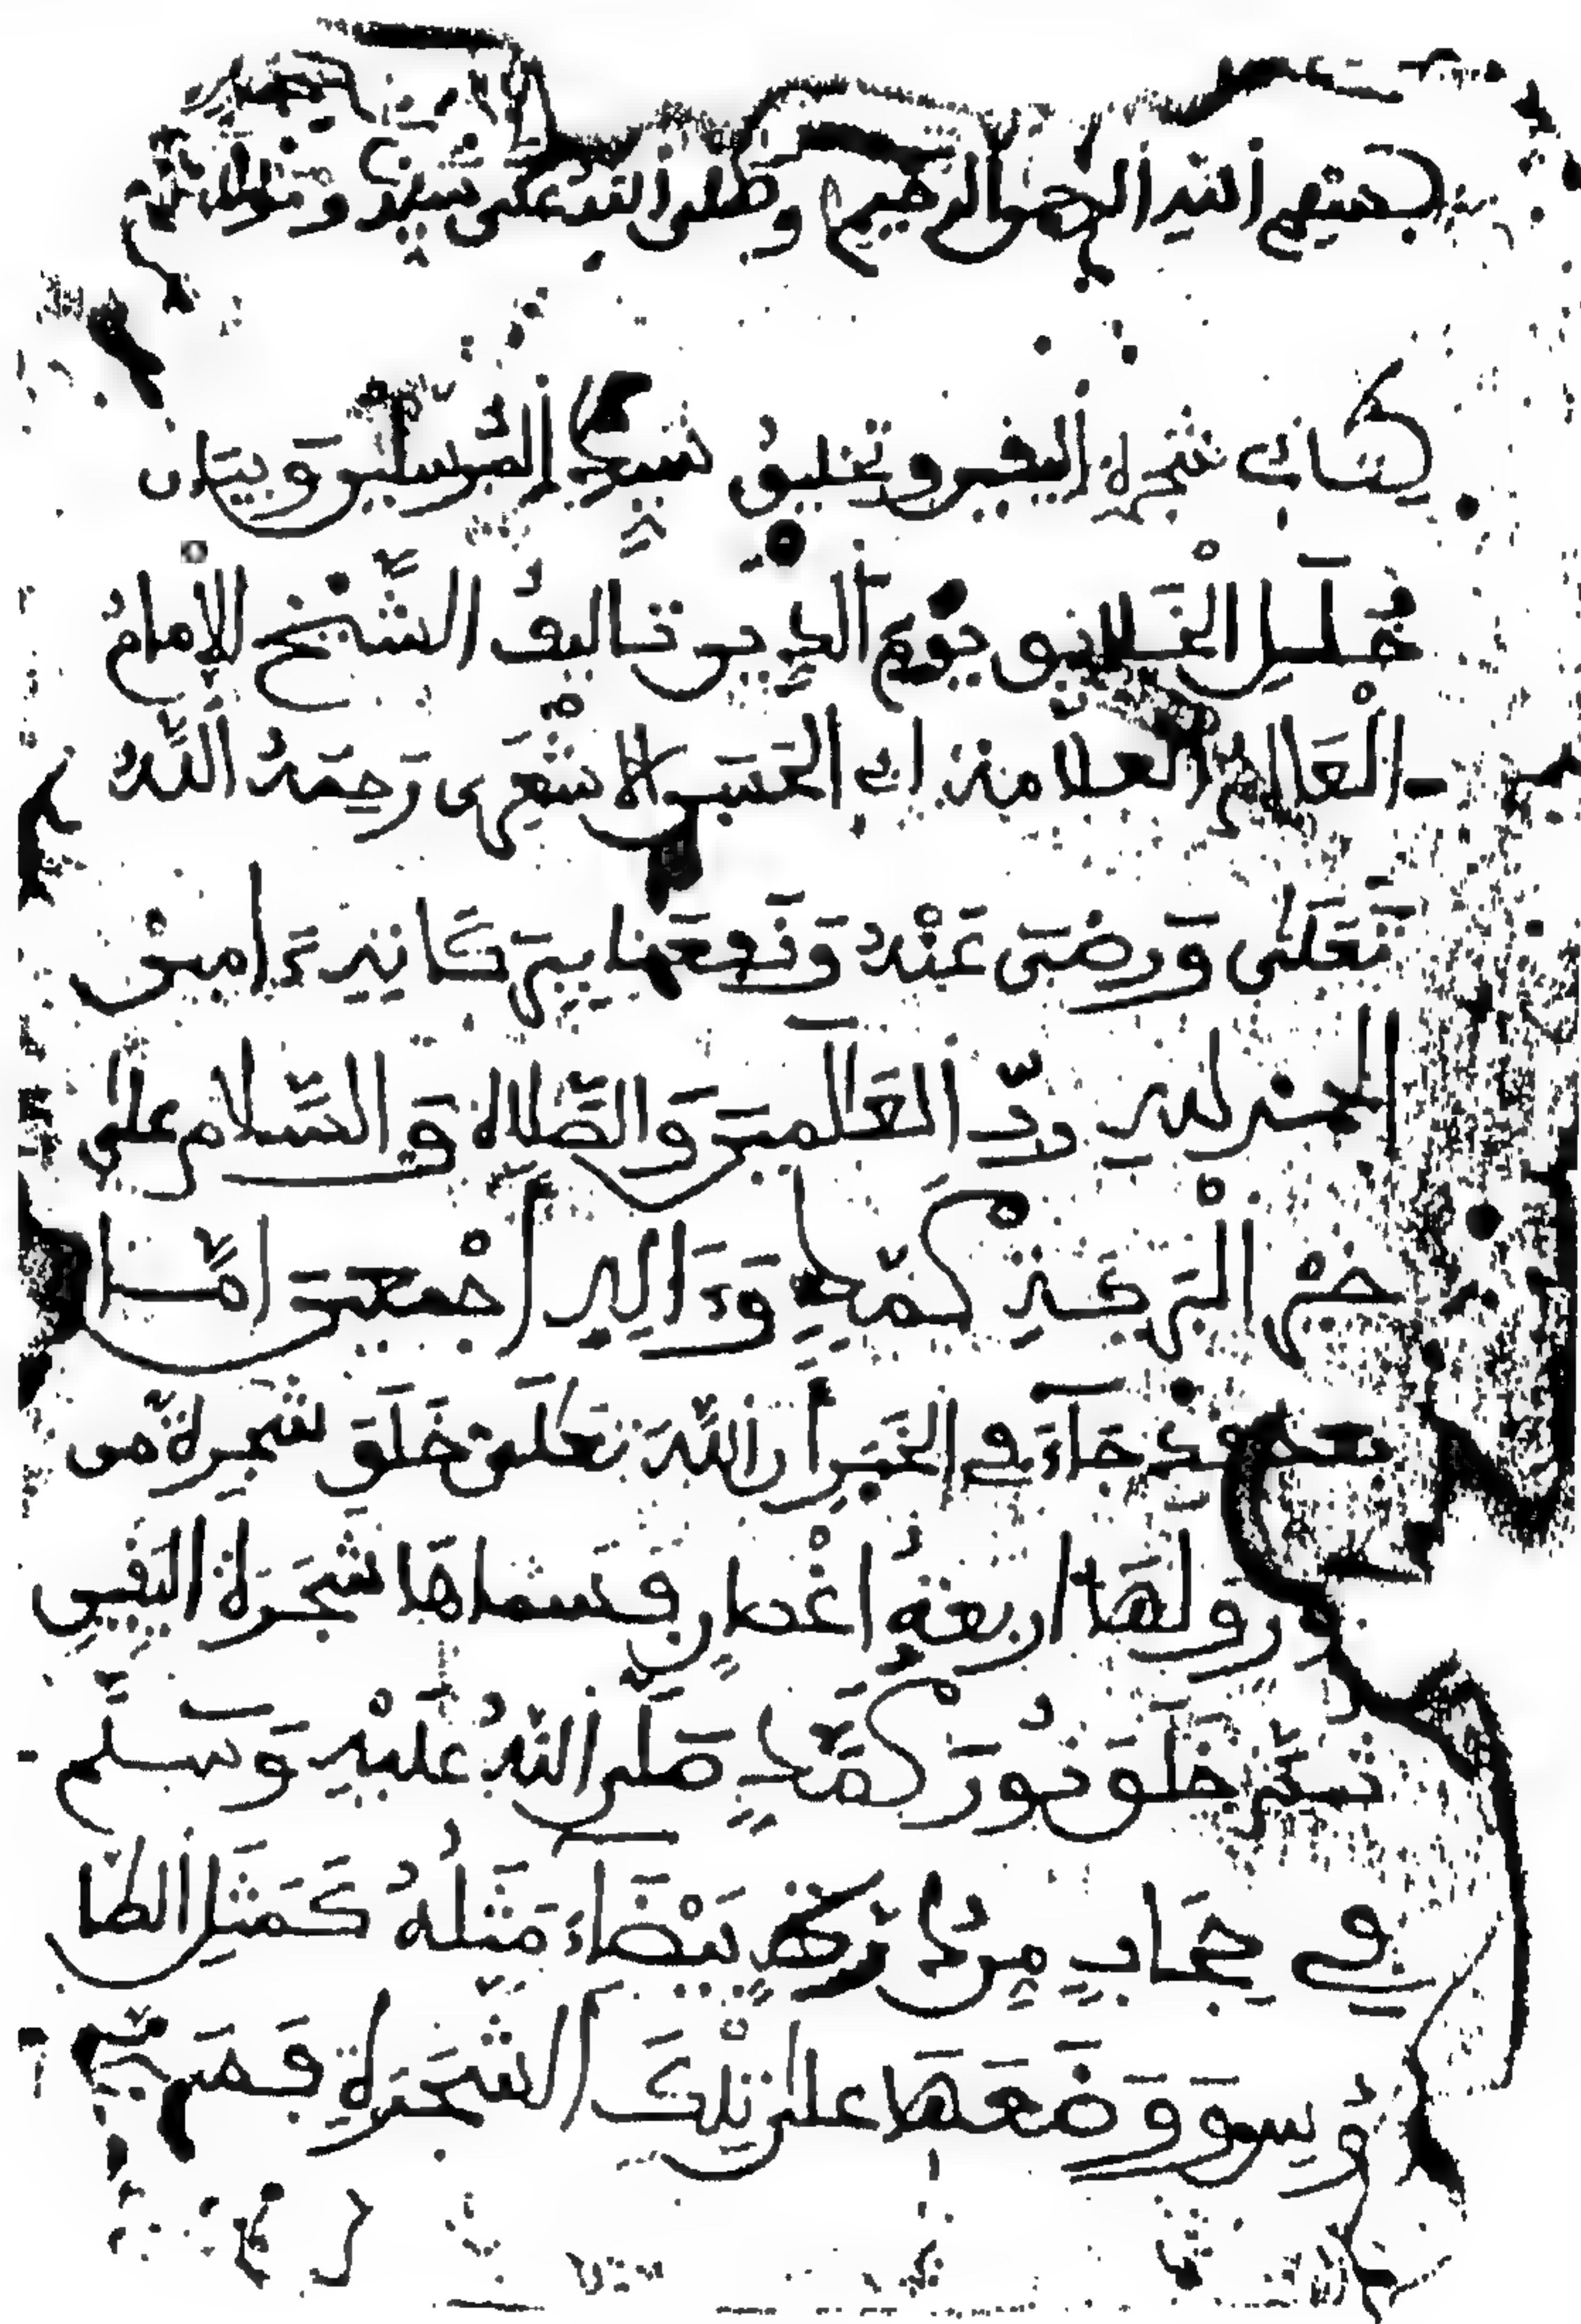 بسم الله الرحمن الرحيم وصلى الله على سيدنا ومولانا
كتاب شجرة اليقين وتخليق سيد المرسلين وبيان
حال الخلائق يوم الدين تاليف الشيخ الإمام
العالم العلامة ابي الحسن الاشعرى رحمه الله
تعلى ورضى عنه ونفعنا ببركاته ءامين
الحمد لله رب العلمين والصلاة والسلام على
خير البرية محمد وءاله أجمعين اما
بعد فقد جاء في الخبر أن الله تعلى خلق شجرة من
نور ولها اربعة اغصان فسماها شجرة اليقين
ثم خلق نور محمد صلى الله عليه وسلم
في حجاب من درة بيضاء مثله كمثل الطا
ؤس ووضعها على تلك الشجرة